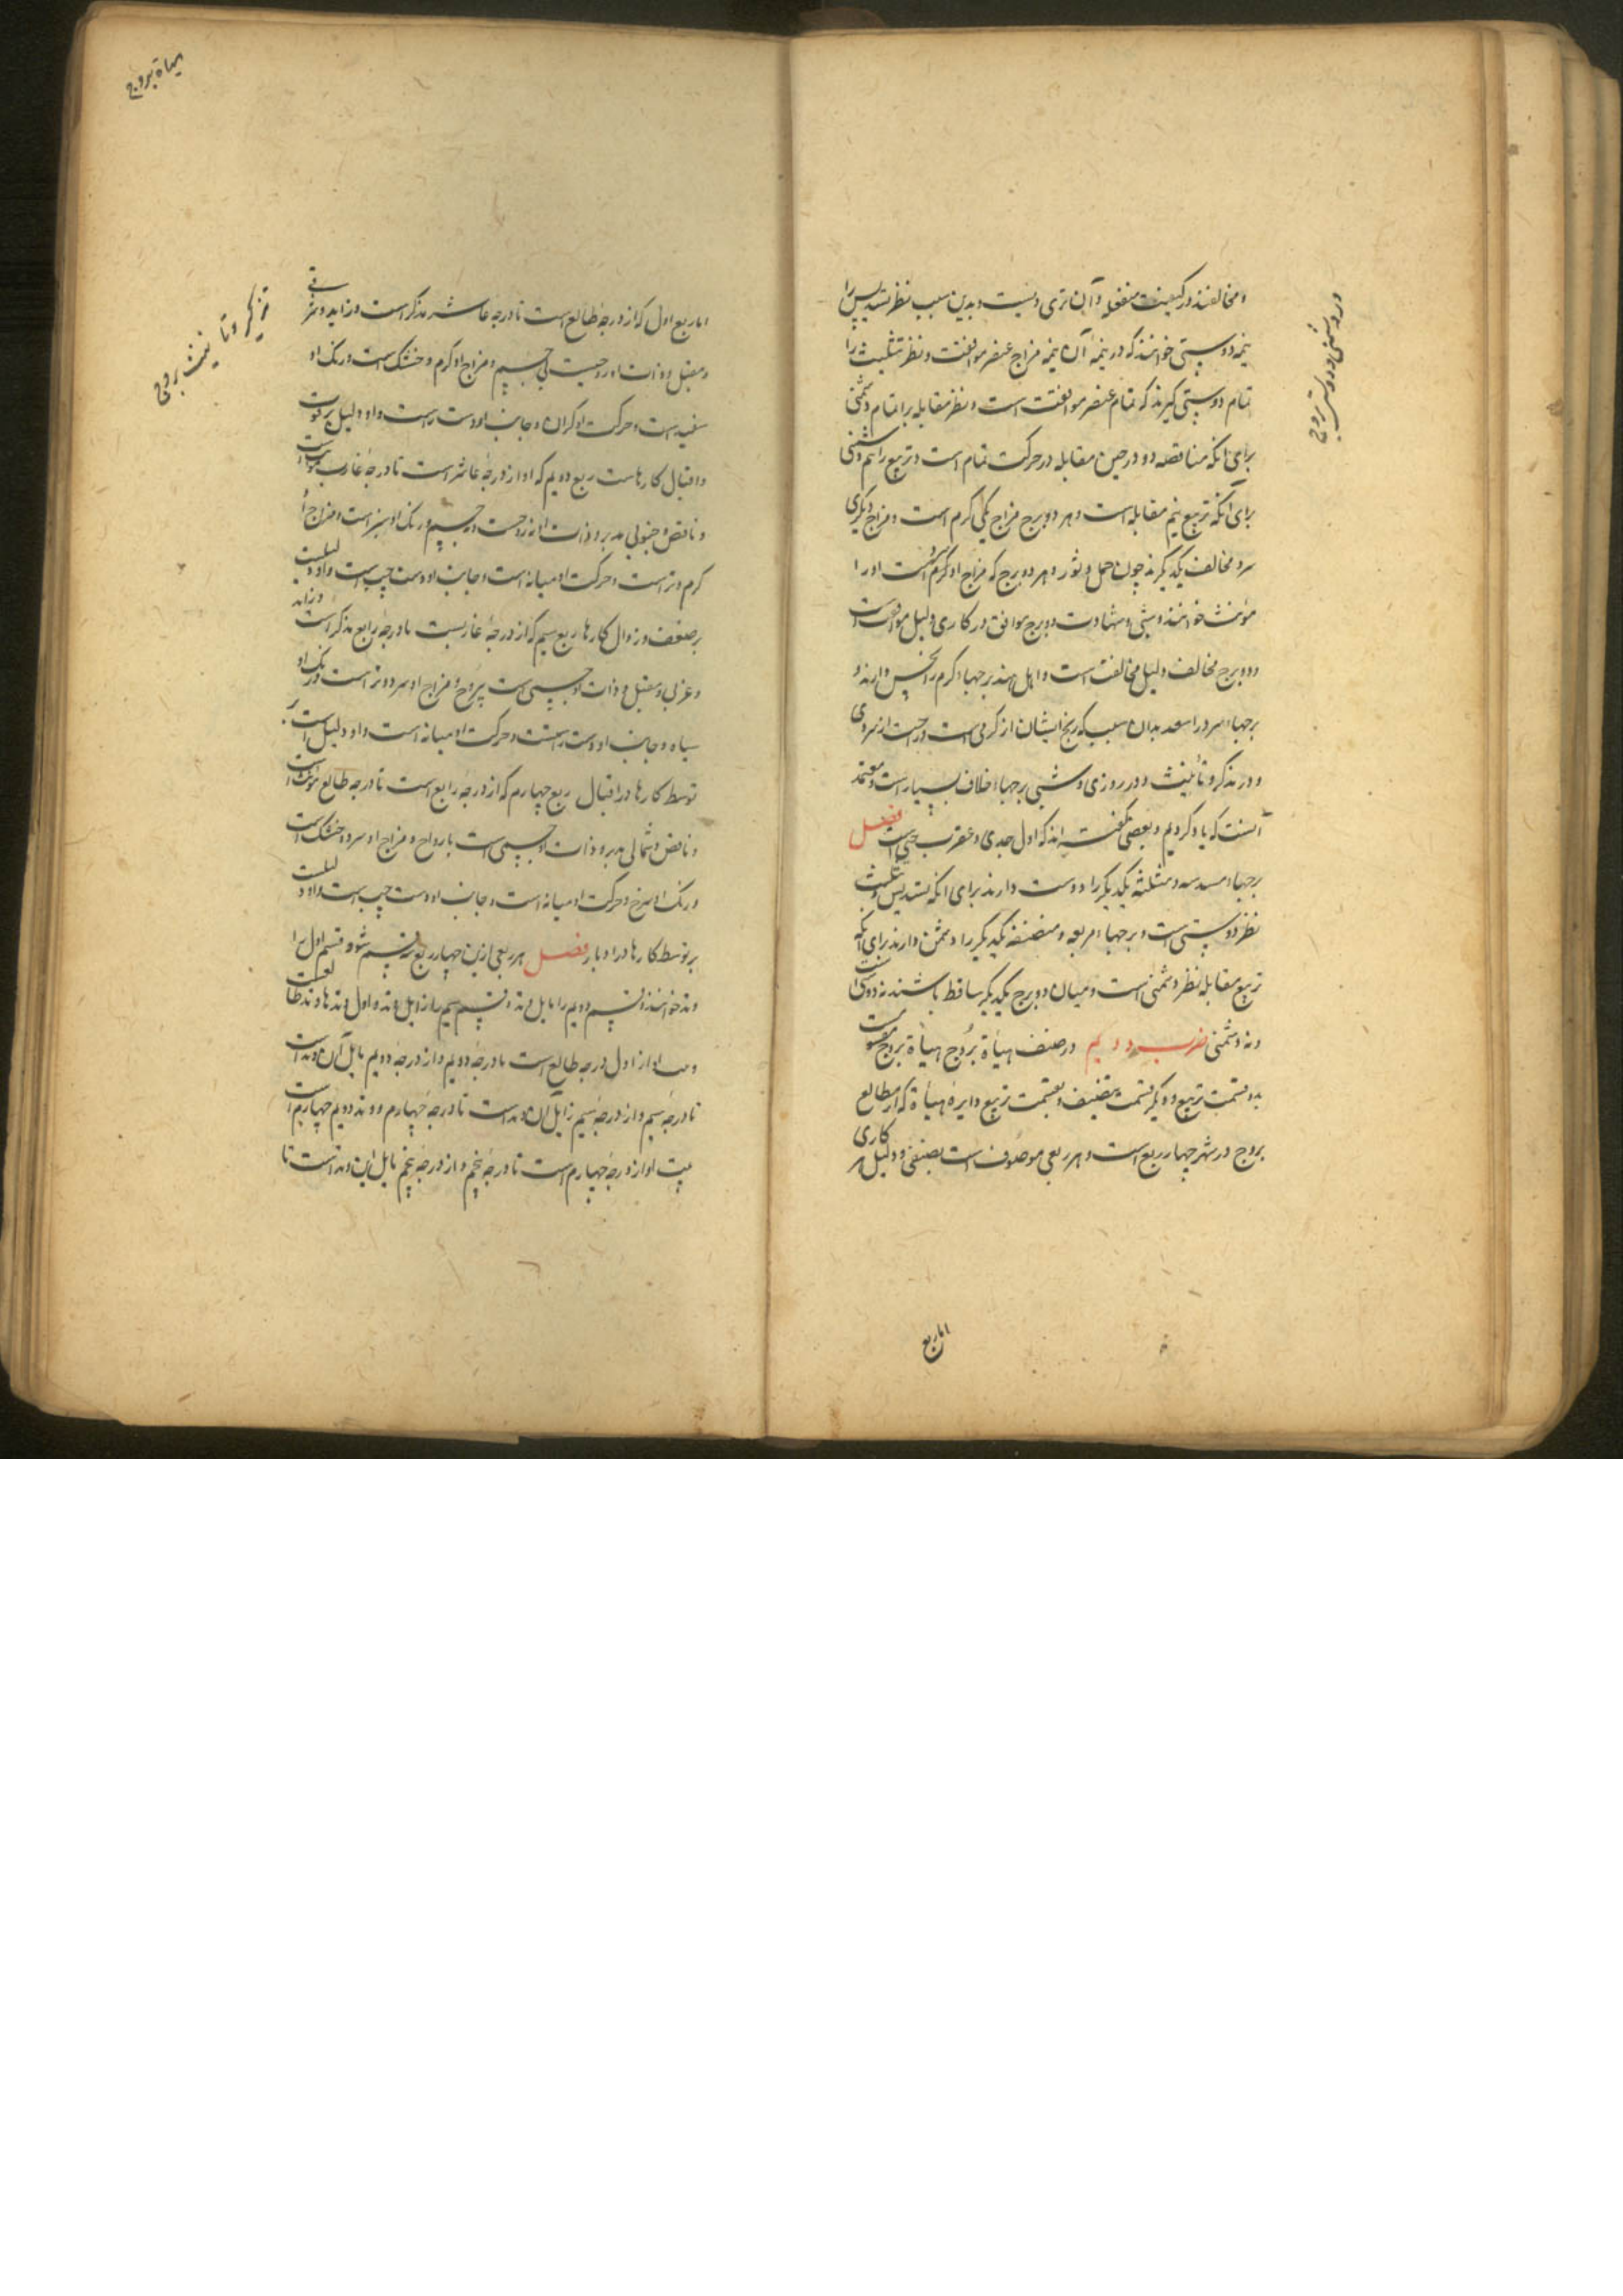 و مخالفند در کیفیت منفعله و آن تری و یبست و بدین سبب نظر تسدیس را
نیمه دوستی خوانند که در نیمه آن نیمه مزاج عنصر موافقت و نظر تثلیث را
تمام دوستی گیرند که تمام عنصر موافقت است و نظر مقابله را تمام دشمنی
برای آنکه مناقصه دو در حین مقابله در حرکت تمام است و تربیع را نیم دشمنی
برای آنکه تربیع نیم مقابله است و هر دو برج مزاج یکی گرم است و مزاج دیگری
سرد مخالف یکدیگرند چون حمل و ثور و هر دو برج که مزاج او گرم است او را
مؤنث خوانند و شبی و شهادت دو برج موافق در کاری دلیل موافقت است
و دو برج مخالف دلیل مخالفت است و اهل هند برجهاء گرم را نحس دارند و
برجهاء سرد را سعد بدان سبب که رنج ایشان از گرمی است و راحت از سردی
و در مذکر و تأنیث و در روزی و شبی برجها اخلاف بسیار است و معتمد
آنست که یاد کردیم و بعضی گفته اند که اول جدی و عقرب است فصل
برجهاء مسدسه و مثلثه یکدیگر را دوست دارند برای آنکه تسدیس و تثلیث
نظر دوستی است و برجهاء مربعه و منصفه یکدیگر را دشمن دارند برای آنکه
تربیع مقابله نظر دشمنی است و میان دو برج یکدیگر ساقط باشند نه دوستی است
و نه دشمنی ضرب دویم در صنف هیأة بروج هیأة بروج
بدو قسمت تربیع و دیگر قسمت تنصیف و بقسمت تربیع دایره هیأة که از مطالع
بروج در شهر چهار ربع است و هر ربعی موصوف است بصنفی و دلیل هر کاری
در دشمنی و دوستی بروج
اما ربع
هیاة بروج
تذکیر و تانیث بروج
اما ربع اول که از درجهٔ طالع است تا درجه عاشر مذکر است و زاید و شرقی
و مقبل و ذات او روحیست بی جسم و مزاج او گرم و خشک است و رنگ او
سفید است و حرکت او گران و جانب او دست راست و او دلیل بر قوت
و اقبال کارهاست ربع دویم که او از درجهٔ عاشر است تا درجهٔ غارب مؤنث است
و ناقص و جنوبی مدبر و ذات او نه روحست و نه جسم و رنگ او سبز است و مزاج او
گرم و تر است و حرکت او میانه است و جانب او دست چپ است و او دلیلست
بر ضعف و زوال کارها ربع سیم که از درجهٔ غاربست تا درجهٔ رابع مذکر است و زاید
و غربی و مقبل و ذات او جسمی است بی روح و مزاج او سرد و تر است و رنگ او
سیاه و جانب او دست راست و حرکت او میانه است و او دلیل است بر
توسط کارها در اقبال ربع چهارم که از درجهٔ رابع است تا درجه طالع مؤنث است
و ناقص و شمالی مدبر و ذات او جسمی است با رواح و مزاج او سرد و خشک است
و رنگ او سرخ و حرکت او میانه است و جانب او دست چپ است و او دلیلست
بر توسط کارها در ادبار فصل هر ربعی ازین چهار ربع بسه قسم شود قسم اول را
وتد خوانند و قسم دویم را مایل وتد و قسم سیم را زایل وتد و اول وتدها وتد طالعست
و او از اول درجه طالع است تا درجهٔ دویم و از درجهٔ دویم مایل آن وتد است
تا درجهٔ سیم و از درجهٔ سیم زایل آن وتد است تا درجهٔ چهارم و وتد دویم چهارم است
او از درجهٔ چهارم است تا درجهٔ پنجم و از درجهٔ پنجم مایل این وتد است تا